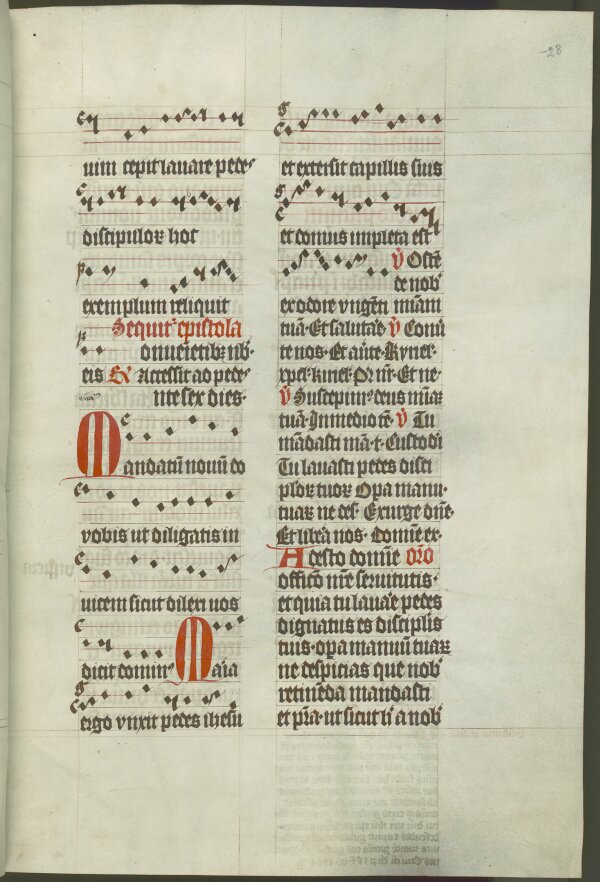 28
uim cepit lavare pede
discipuloꝝ hoc
exemplum reliquit
Sequit' epistola
onuenietibꝫ vob·
eis Ev Accessit ad pede·
nte sex dies·
Mandatū nouū do
vobis ut diligatis in
uicem sicut dilexi uos
dicit domin' Maīa
ergo vnxit pedes ihesu
et extersit capillis suis
et domus impleta est
v̄ Oste
de nob
ex odore vngēti mīam
tuā· Et salutāe· v̄ Conū
te nos· Et aūte· Kyriel·
xpel· kiriel· Pr nr̄· Et ne·
v̄ Suscepim' deus mīaꝫ
tuā· In medio tē· v̄ Tu
mādasti mā·t· Custodi
Tu lavasti pedes disci
ploꝝ tuoꝝ Opa manu·
tuaꝝ ne des· Exurge dn̄e·
Et libīa nos· Domīe ex·
Adesto domīe oro
officō nr̄e seruitutis·
et quia tu lauāe pedes
dignatus es discipl'is
tuis· opa manuū tuaꝝ
ne despicias que nob
retinēda mandasti
et pīa· ut sicut h' a nob